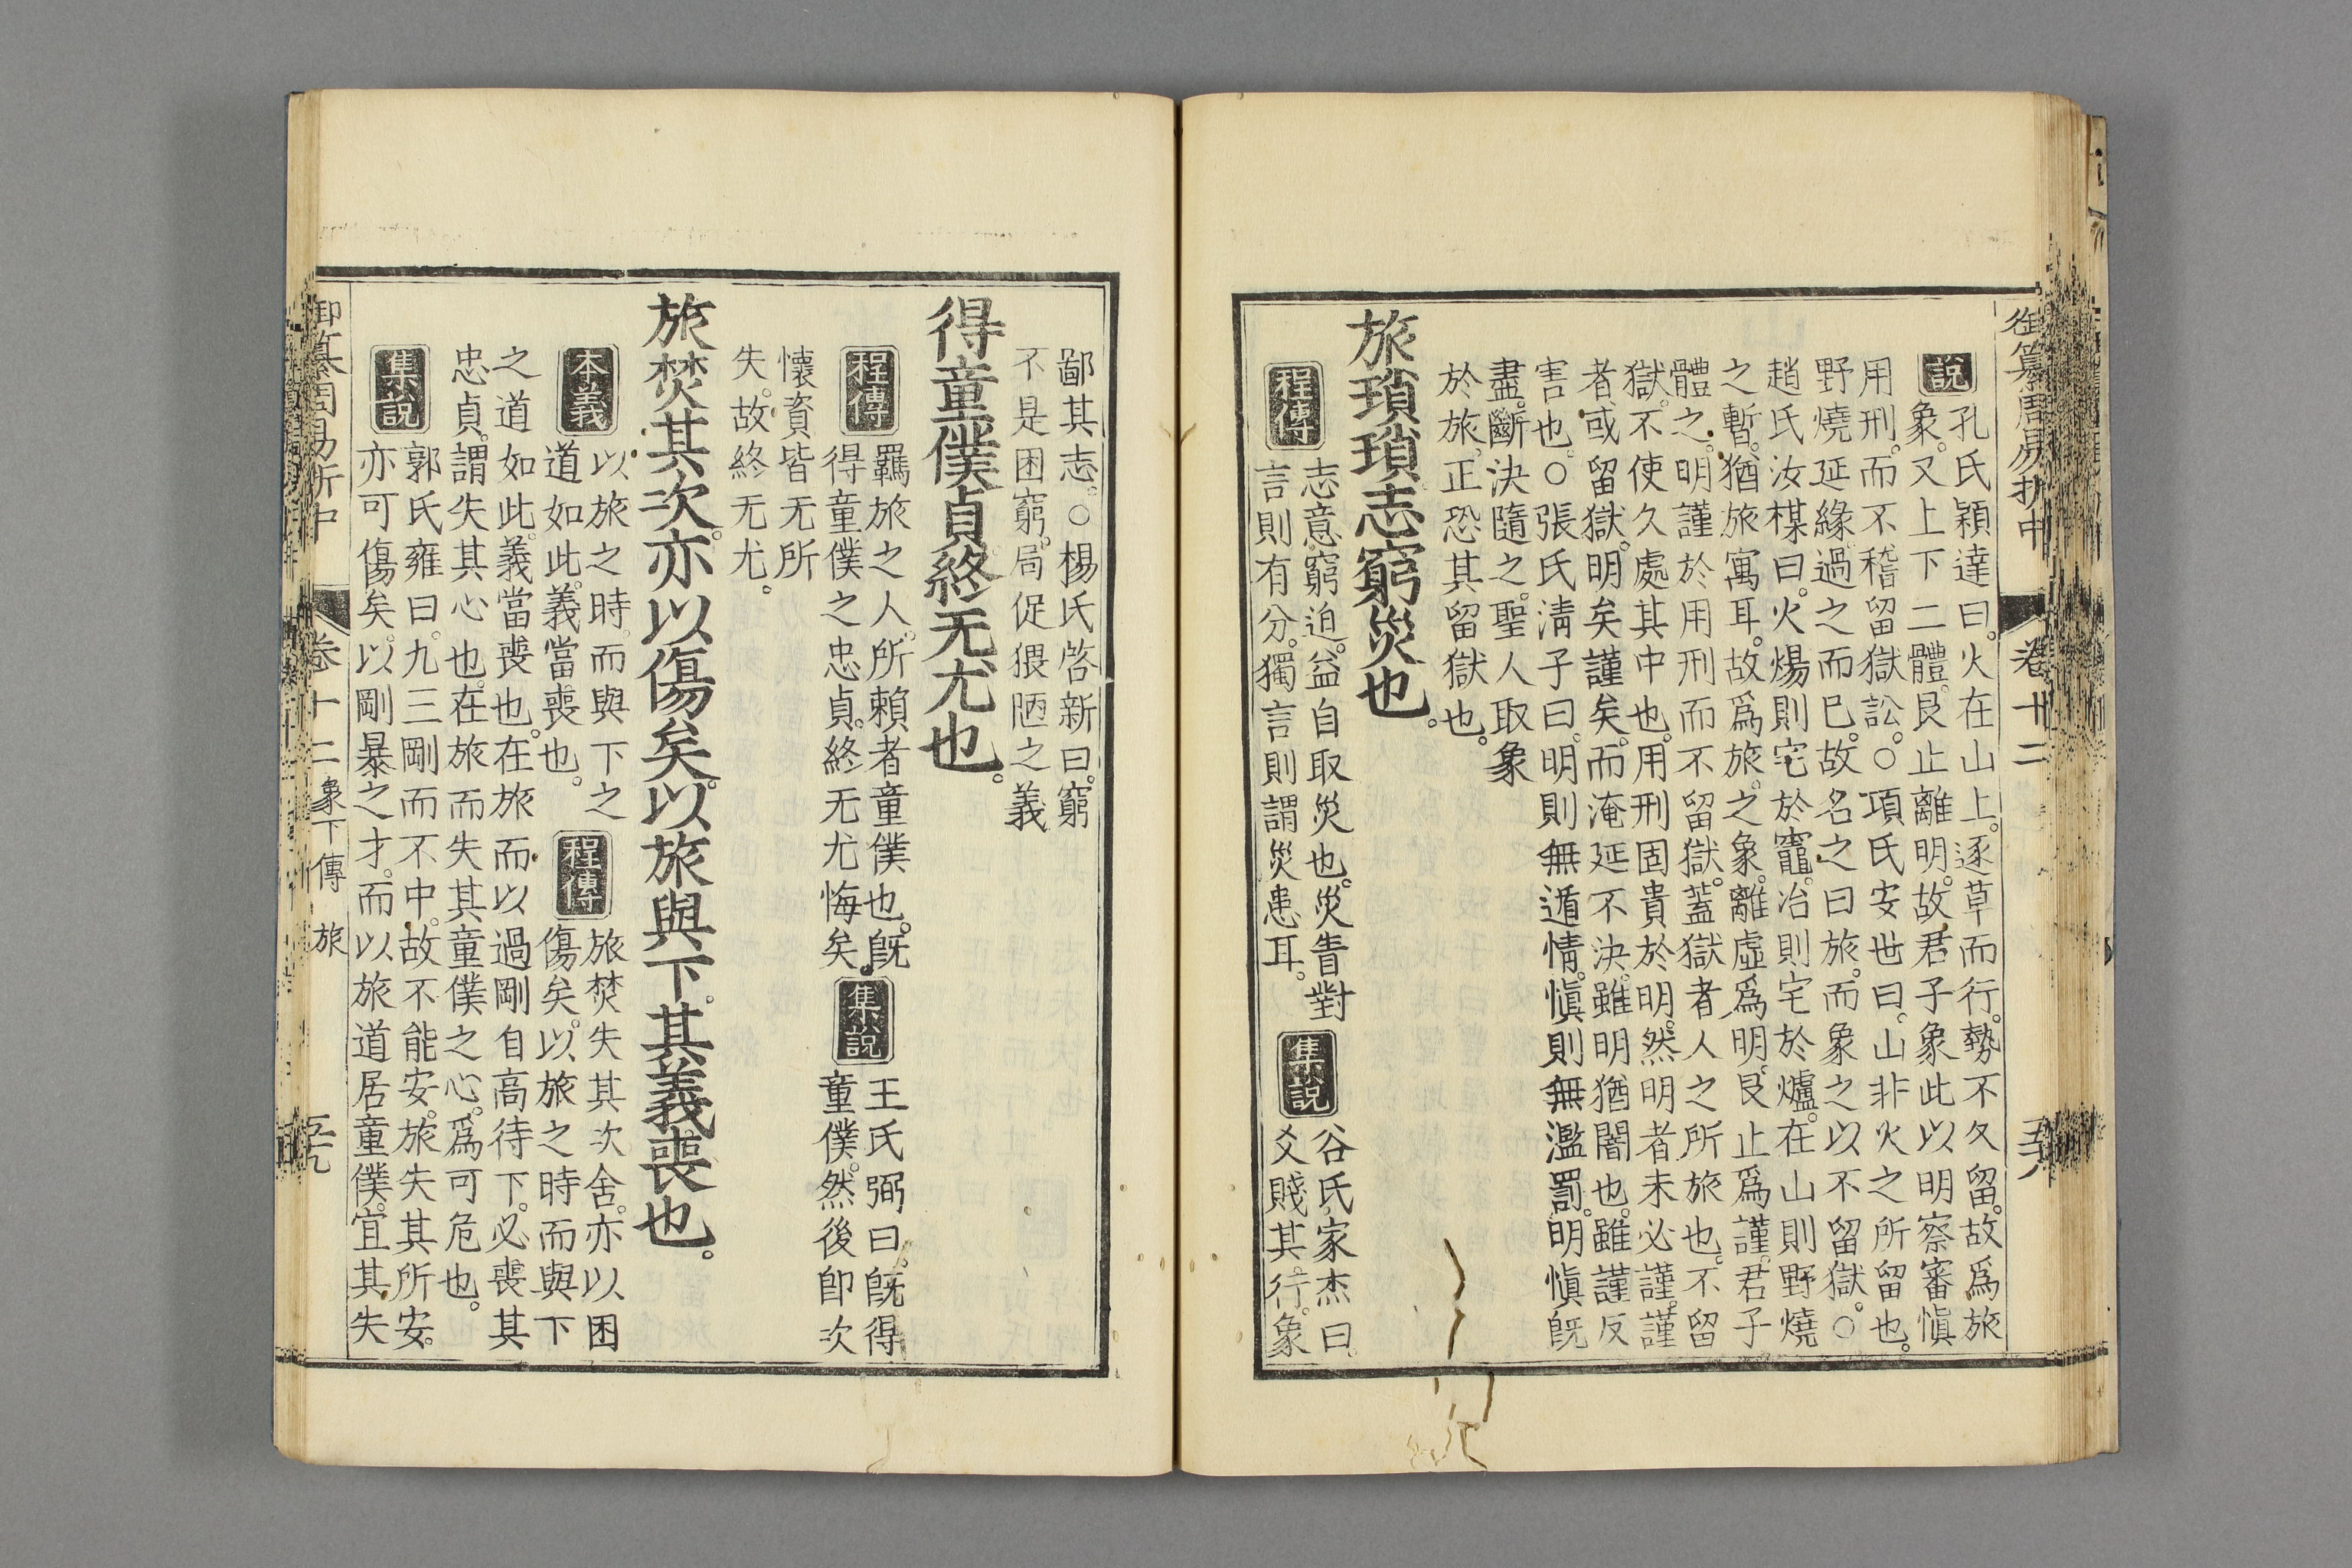 御纂周易折中 卷十二 五十八
說 孔氏穎達曰。火在山上。逐草而行。勢不久留。故爲旅
象。又上下二體。艮止離明。故君子象此以明察審愼
用刑。而不稽留獄訟。○項氏安世曰。山非火之所留也。
野燒延緣。過之而已。故名之曰旅。而象之以不留獄。○
趙氏汝楳曰。火煬則宅於竈。冶則宅於爐。在山則野燒
之暫。猶旅寓耳。故爲旅。之象。離虛爲明。艮止爲謹。君子
體之。明謹於用刑而不留獄。蓋獄者人之所旅也。不留
獄。不使久處其中也。用刑固貴於明。然明者未必謹。謹
者或留獄。明矣謹矣。而淹延不決。雖明猶闇也。雖謹反
害也。○張氏淸子曰。明則無遁情。愼則無濫罰。明愼旣
盡。斷決隨之。聖人取象
於旅。正恐其留獄也。
旅瑣瑣志窮災也。
程傳 志意窮迫。益自取災也。災眚對
言則有分。獨言則謂災患耳。
集說 谷氏家杰曰
爻賤其行。象
鄙其志。○楊氏啓新曰。窮
不是困窮。局促猥陋之義
得童僕貞終无尤也。
程傳 羈旅之人。所賴者童僕也。旣
得童僕之忠貞。終无尤悔矣。
集說 王氏弼曰。旣得
童僕。然後卽次
懷資皆无所
失。故終无尤。
旅焚其次。亦以傷矣。以旅與下。其義喪也。
本義 以旅之時。而與下之
道如此。義當喪也。
程傳 旅焚失其次舍。亦以困
傷矣。以旅之時而與下
之道如此。義當喪也。在旅而以過剛自高待下。必喪其
忠貞。謂失其心也。在旅而失其童僕之心。爲可危也。
集說 郭氏雍曰。九三剛而不中。故不能安。旅失其所安。
亦可傷矣。以剛暴之才。而以旅道居童僕。宜其失
御纂周易折中 卷十二 象下傳 旅 五十九